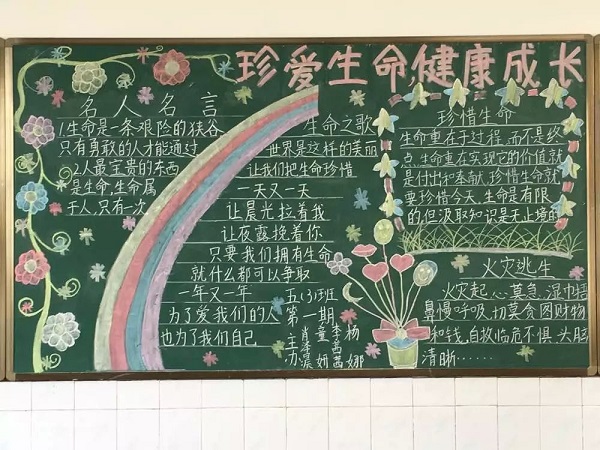 珍爱生命,健康成长
名人名言
1.生命是一条艰险的狭谷
只有勇敢的人才能通过
2.人最宝贵的东西
是生命,生命属
于人,只有一次
生命之歌
世界是这样的美丽
让我们把生命珍惜
一天又一天
让晨光拉着我
让夜露挽着你
只要我们拥有生命
就什么都可以争取
一年又一年
为了爱我们的人
也为了我们自己
五(3)班
第一期
主办
珍惜生命
生命重在于过程,而不是终
点,生命重在实现它的价值就
是付出和奉献,珍惜生命就
要珍惜今天,生命是有限
的但汲取知识是无止境的
火灾逃生
火灾起,心莫急,湿巾捂
鼻慢呼吸,切莫贪图财物
和钱,自救临危不惧,头脑
清晰……